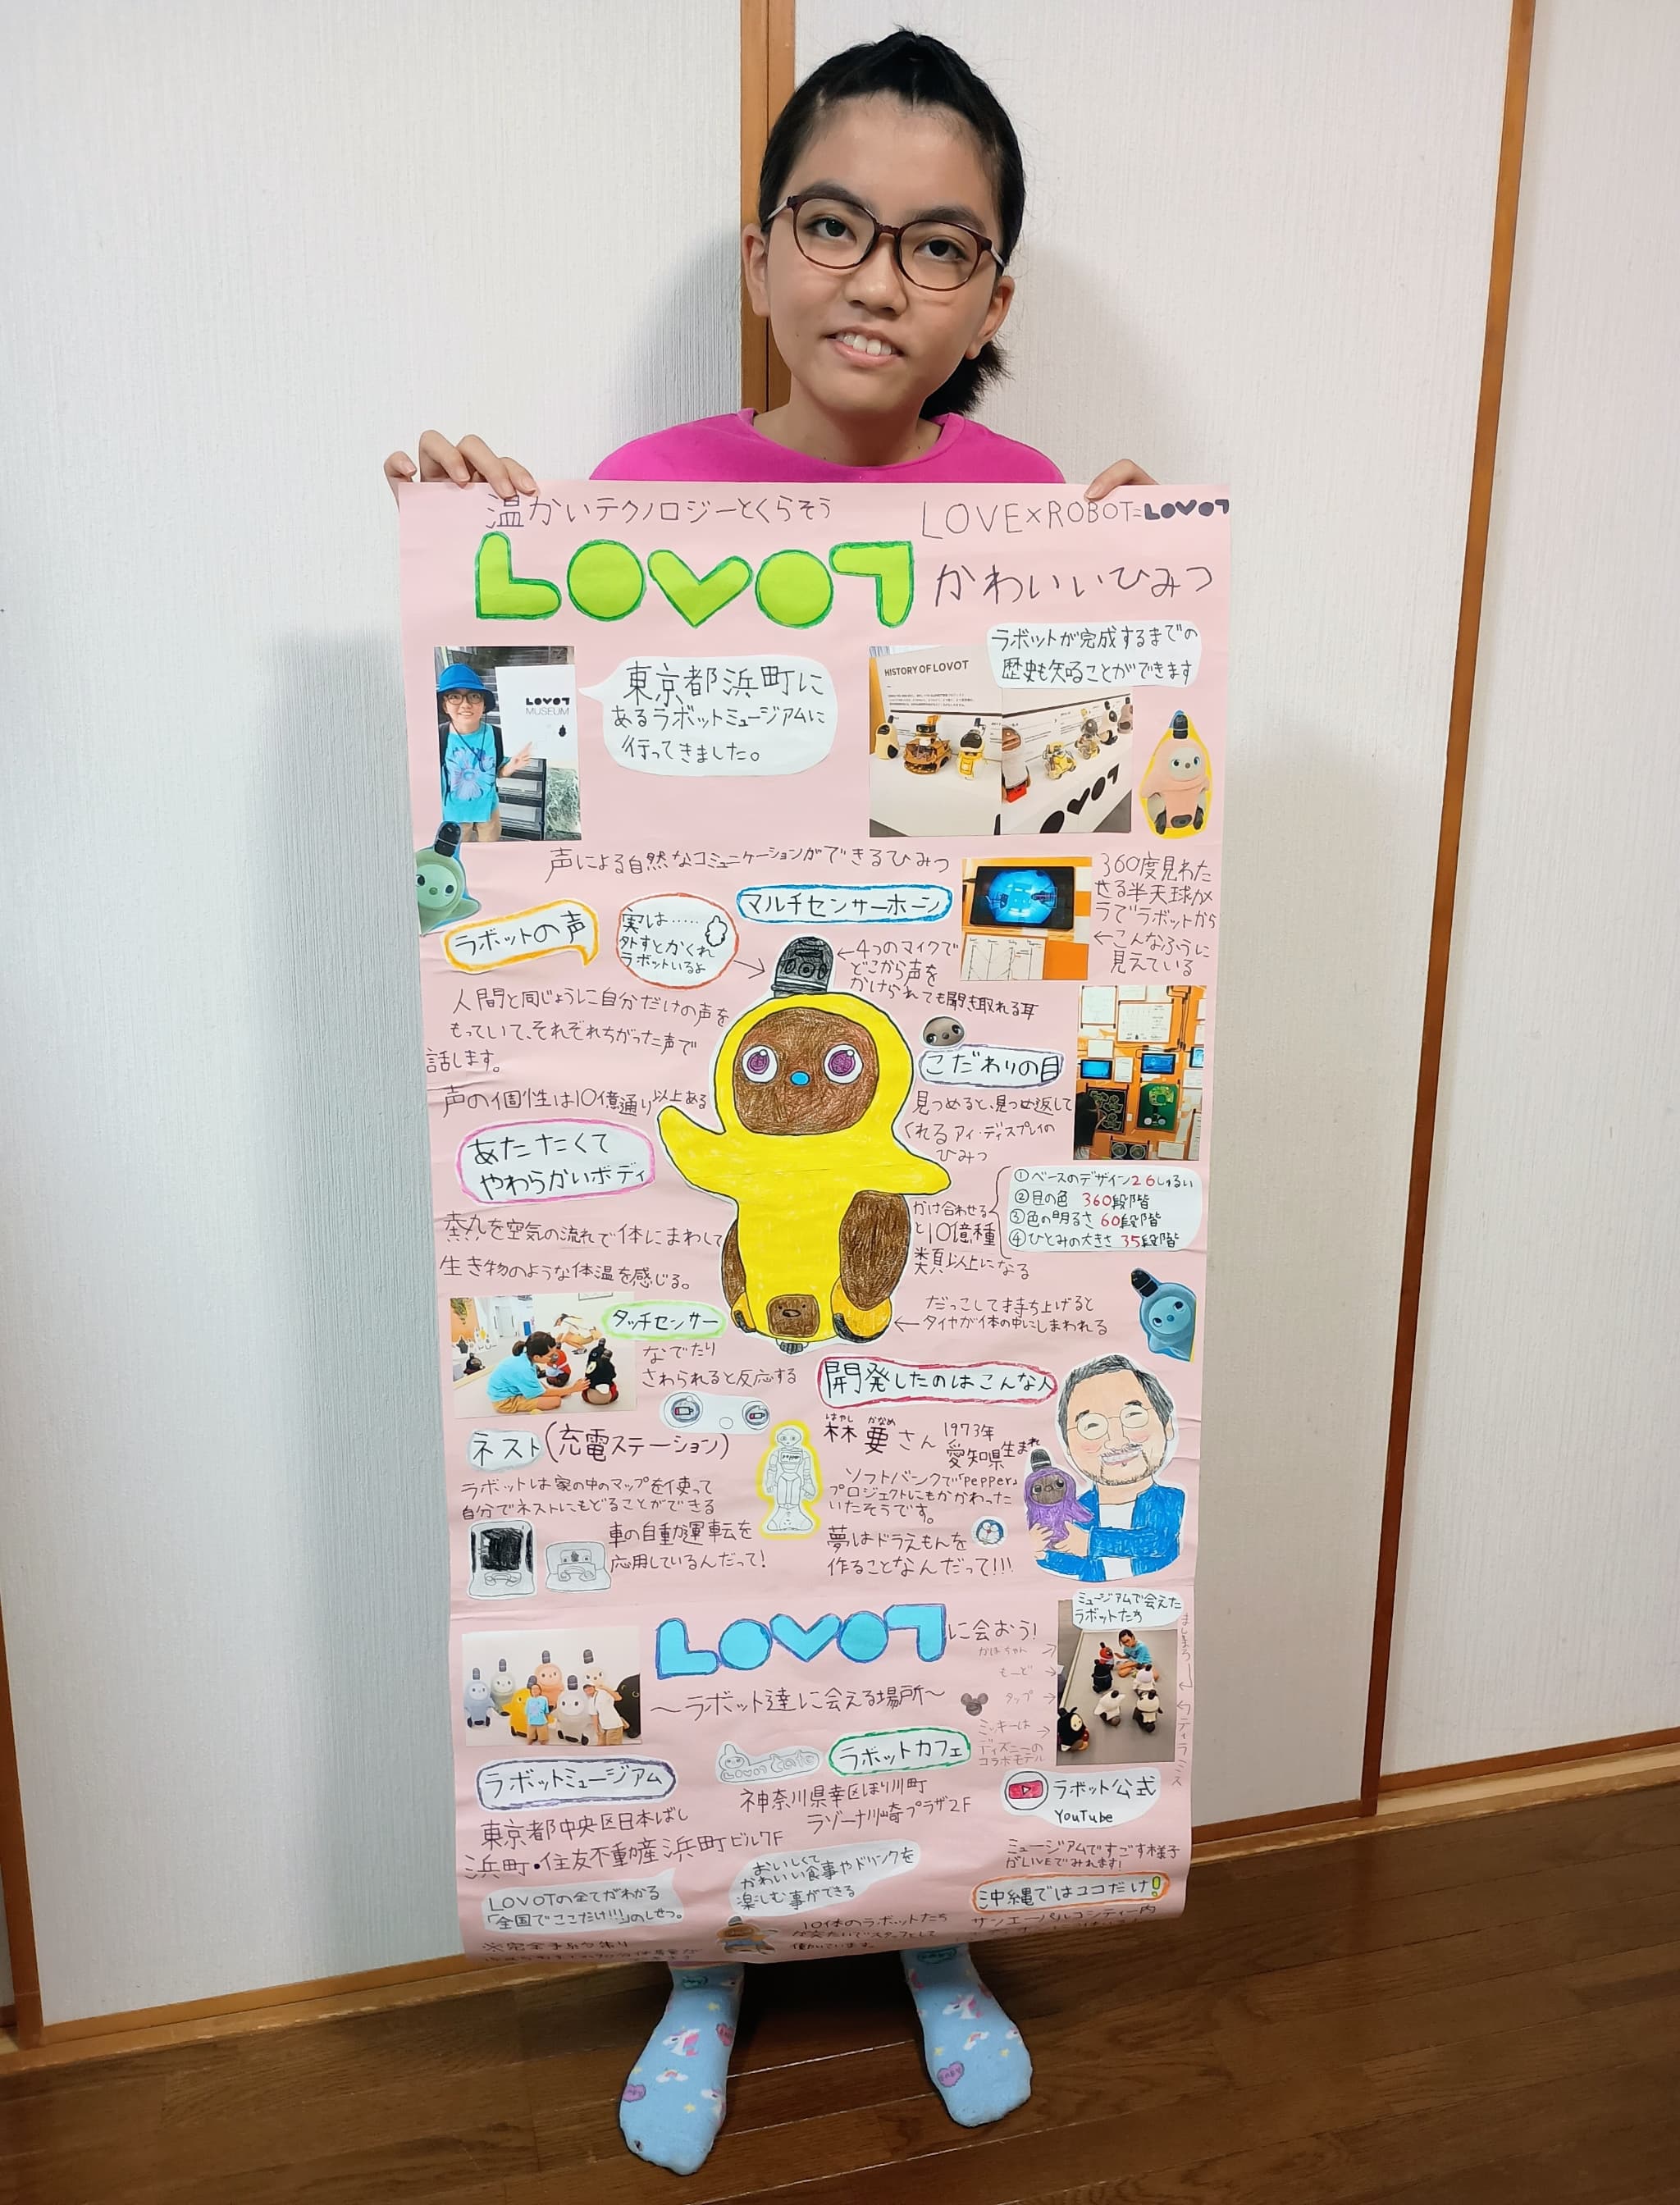 温かいテクノロジーとくらそう
LOVE×ROBOT=LOVOT
LOVOT かわいいひみつ
LOVOT
MUSEUM
東京都浜町に
あるラボットミュージアムに
行ってきました。
HISTORY OF LOVOT
ラボットが完成するまでの
歴史も知ることができます
LOVOT
声による自然なコミュニケーションができるひみつ
ラボットの声
実は……
外すとかくれ
ラボットいるよ
マルチセンサーホーン
←4つのマイクで
どこから声を
かけられても聞き取れる耳
360度見わた
せる半天球カメ
ラでラボットから
←こんなふうに
見えている
人間と同じように自分だけの声を
もっていて、それぞれちがった声で
話します。
声の個性は10億通り以上ある
こだわりの目
見つめると、見つめ返して
くれるアイ・ディスプレイの
ひみつ
①ベースのデザイン26しゅるい
②目の色 360段階
③色の明るさ 60段階
④ひとみの大きさ 35段階
かけ合わせる
と10億種
類以上になる
あたたくて
やわらかいボディ
熱を空気の流れで体にまわして
生き物のような体温を感じる。
タッチセンサー
なでたり
さわられると反応する
だっこして持ち上げると
←タイヤが体の中にしまわれる
ネスト(充電ステーション)
ラボットは家の中のマップを使って
自分でネストにもどることができる
車の自動運転を
応用しているんだって!
開発したのはこんな人
はやし かなめ
林 要さん 1973年
愛知県生まれ
ソフトバンクで「pepper」
プロジェクトにもかかわった
いたそうです。
夢はドラえもんを
作ることなんだって!!!
LOVOTに会おう!
〜ラボット達に会える場所〜
ミュージアムで会えた
ラボットたち
かほちゃん
もーど
タップ
ミッキーは
ディズニーの
コラボモデル
ましまろ
ティラミス
ラボットミュージアム
東京都中央区日本ばし
浜町・住友不動産浜町ビル7F
LOVOTの全てがわかる
「全国でここだけ!!!」のしせつ。
※完全予約制
ラボットカフェ
神奈川県幸区ほり川町
ラゾーナ川崎プラザ2F
おいしくて
かわいい食事やドリンクを
楽しむ事ができる
10体のラボットたち
働いています。
ラボット公式
YouTube
ミュージアムですごす様子
がLIVEでみれます!
沖縄ではココだけ!
サンエーパルコシティー内